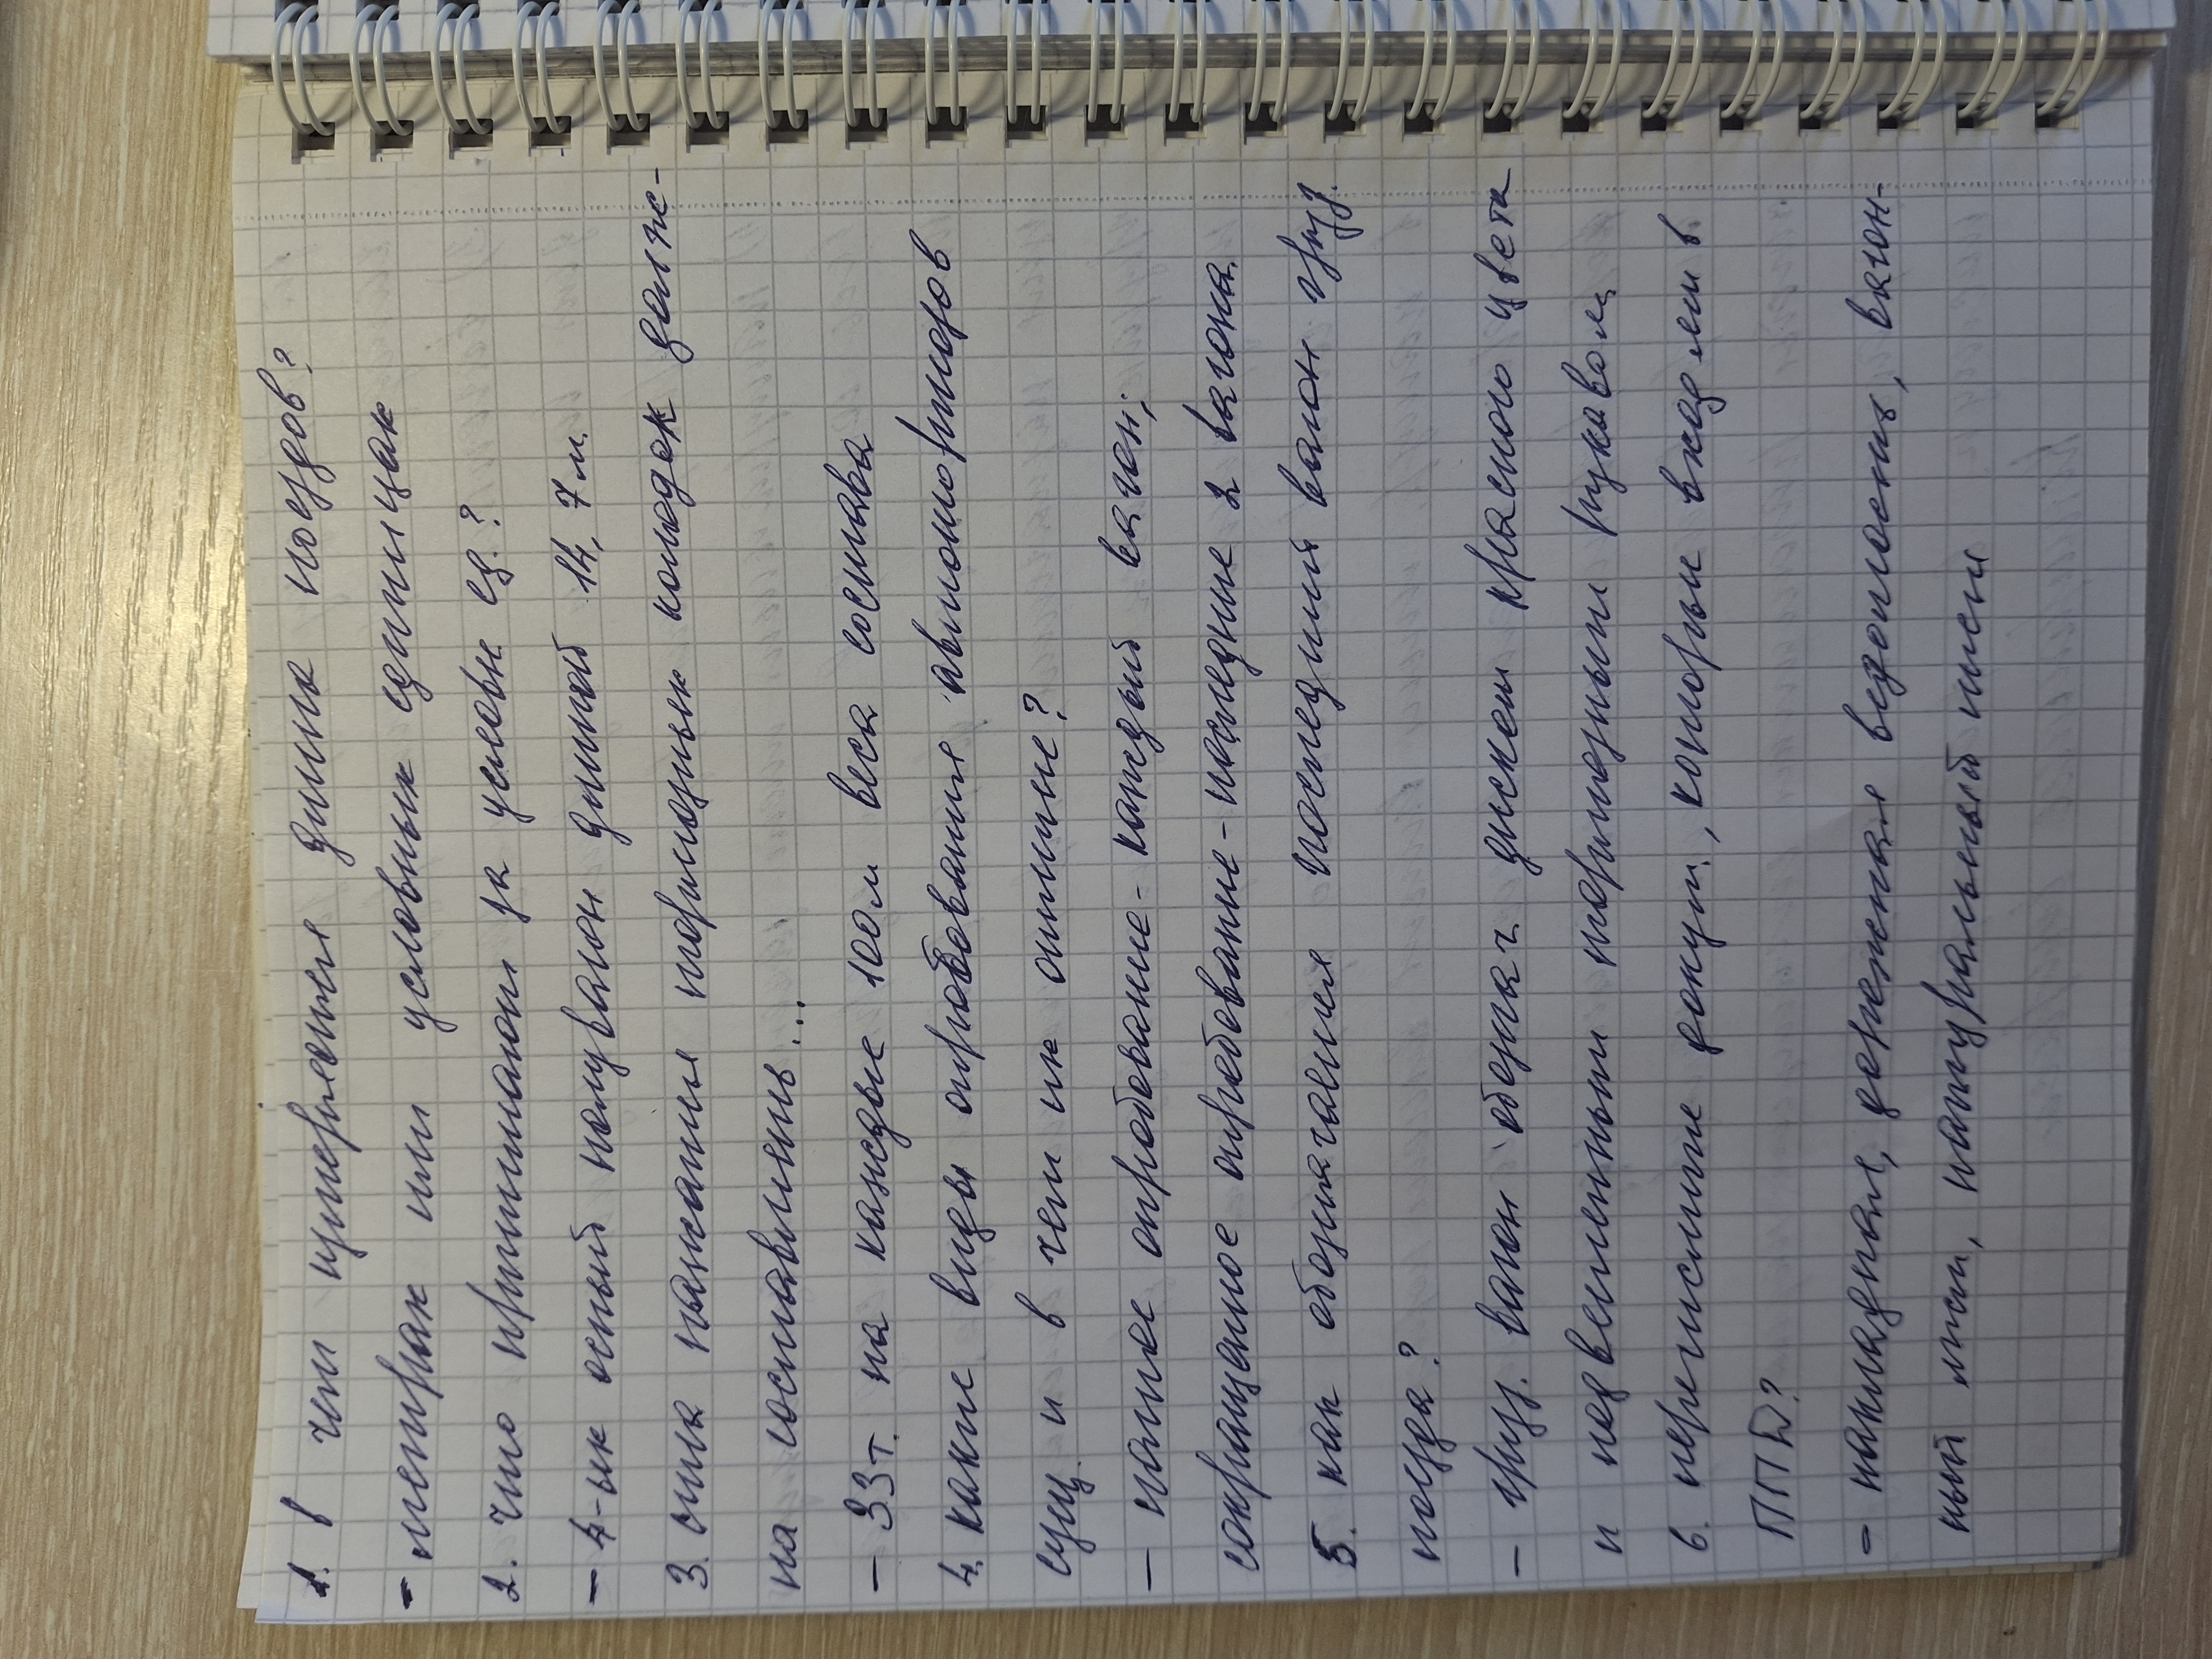 1. в чем измеряется длина поездов?
- метрах или условных единицах
2. что принимают за условн ед.?
- 4-ых осный полувагон длиной 14,7м.
3. сила нажатия тормозных колодок долж-
на составлять...
- 33т. на каждые 100м веса состава
4. какие виды опробования автотормозов
сущ. и в чем их отличие?
- полное опробование - каждый вагон;
сокращенное опробование - последние 2 вагона.
5. как обозначается последний вагон груз.
поезда?
- груз. вагон обознач. диском красного цвета
и подвешенным тормозным рукавом
6. перечислите докум., которые входят в
ППД?
- накладная, дорожная ведомость, вагон-
ный лист, натуральный лист